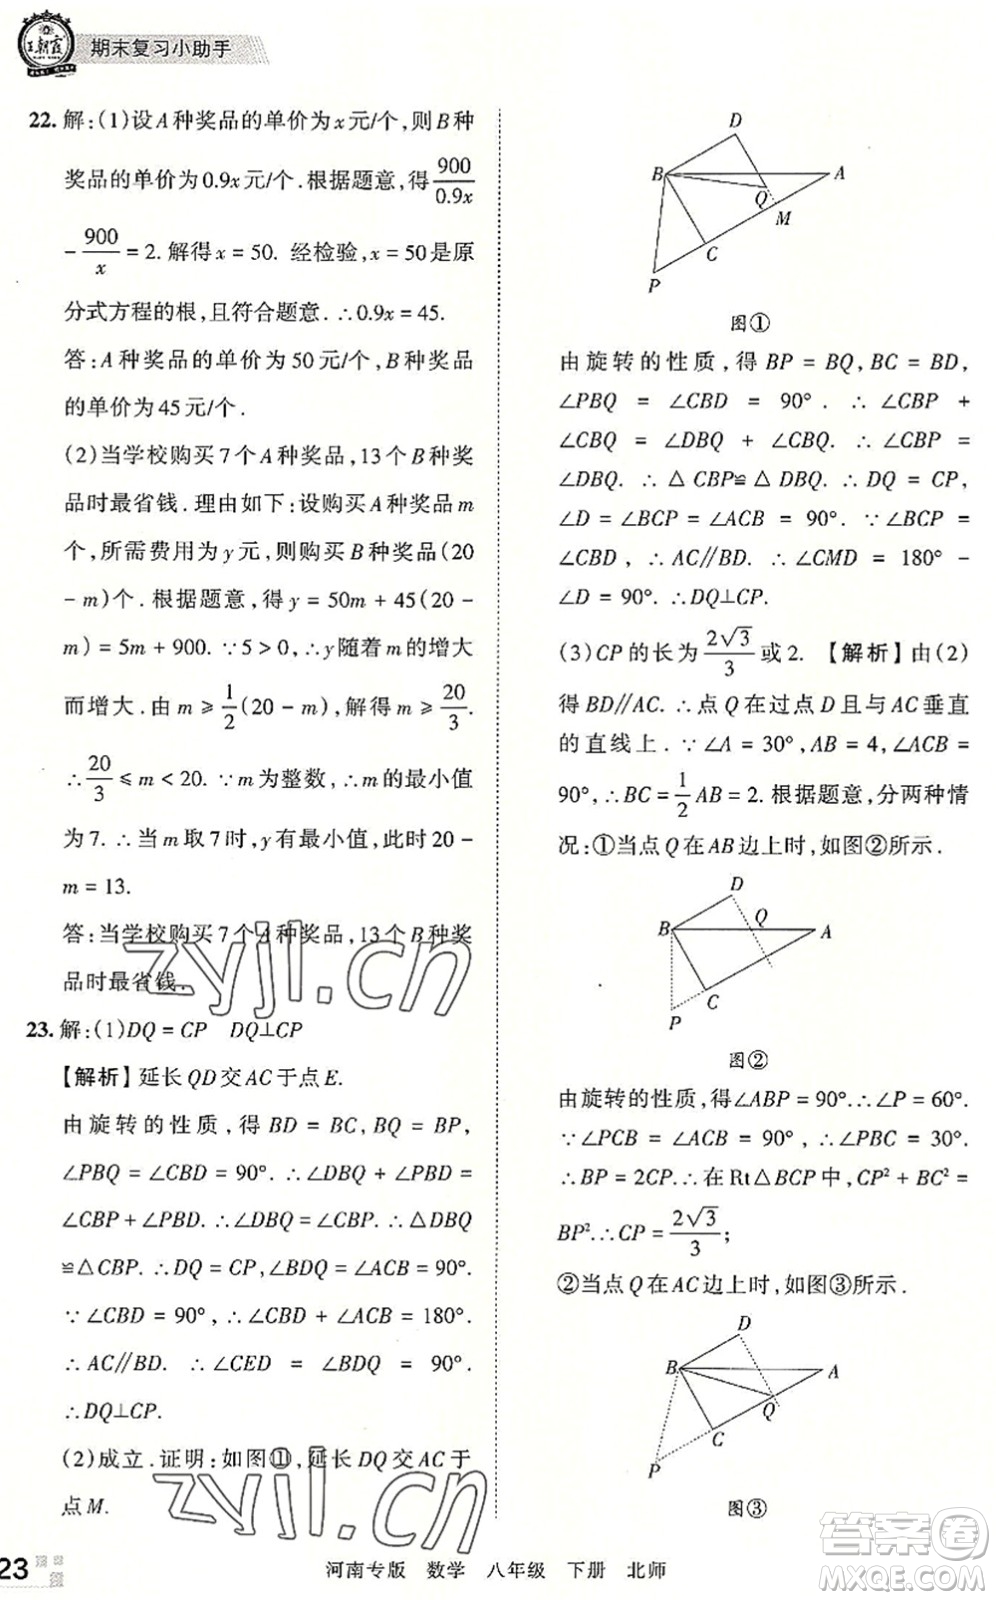 王朝霞
期末复习小助手
22. 解:(1)设A种奖品的单价为x元/个,则B种
奖品的单价为0.9x元/个.根据题意,得900/0.9x
- 900/x = 2. 解得x = 50. 经检验,x = 50是原
分式方程的根,且符合题意. ∴0.9x = 45.
答:A种奖品的单价为50元/个,B种奖品
的单价为45元/个.
(2)当学校购买7个A种奖品,13个B种奖
品时最省钱.理由如下:设购买A种奖品m
个,所需费用为y元,则购买B种奖品(20
- m)个.根据题意,得y = 50m + 45(20 -
m) = 5m + 900. ∵5 > 0,∴y随着m的增大
而增大. 由m ⩾ 1/2(20 - m),解得m ⩾ 20/3.
∴20/3 ⩽ m < 20. ∵m为整数,∴m的最小值
为7. ∴当m取7时,y有最小值,此时20 -
m = 13.
答:当学校购买7个A种奖品,13个B种奖
品时最省钱.
23. 解:(1)DQ = CP DQ⊥CP
【解析】延长QD交AC于点E.
由旋转的性质,得BD = BC,BQ = BP,
∠PBQ = ∠CBD = 90°. ∴∠DBQ + ∠PBD =
∠CBP + ∠PBD. ∴∠DBQ = ∠CBP. ∴△DBQ
≌△CBP. ∴DQ = CP,∠BDQ = ∠C = 90°.
∵∠CBD = 90°,∴∠CBD + ∠ACB = 180°.
∴AC∥BD. ∴∠CED = ∠BDQ = 90°.
∴DQ⊥CP.
(2)成立.证明:如图①,延长DQ交AC于
点M.
D
B
A
Q
M
C
P
图①
由旋转的性质,得BP = BQ,BC = BD,
∠PBQ = ∠CBD = 90°. ∴∠CBP +
∠CBQ = ∠DBQ + ∠CBQ. ∴∠CBP =
∠DBQ. ∴△CBP≌△DBQ. ∴DQ = CP,
∠D = ∠BCP = ∠ACB = 90°. ∵∠BCP =
∠CBD,∴AC∥BD. ∴∠CMD = 180° -
∠D = 90°. ∴DQ⊥CP.
(3)CP的长为2√3/3或2. 【解析】由(2)
得BD∥AC. ∴点Q在过点D且与AC垂直
的直线上. ∵∠A = 30°,AB = 4,∠ACB =
90°,∴BC = 1/2 AB = 2. 根据题意,分两种情
况:①当点Q在AB边上时,如图②所示.
D
Q
B
A
C
P
图②
由旋转的性质,得∠ABP = 90°.∴∠P = 60°.
∵∠PCB = ∠ACB = 90°,∴∠PBC = 30°.
∴BP = 2CP.∴在Rt△BCP中,CP² + BC² =
BP².∴CP = 2√3/3;
②当点Q在AC边上时,如图③所示.
D
B
A
Q
C
P
图③
zyjl.cn
zyjl.cn
答案卷
23
河南专版 数学 八年级 下册 北师